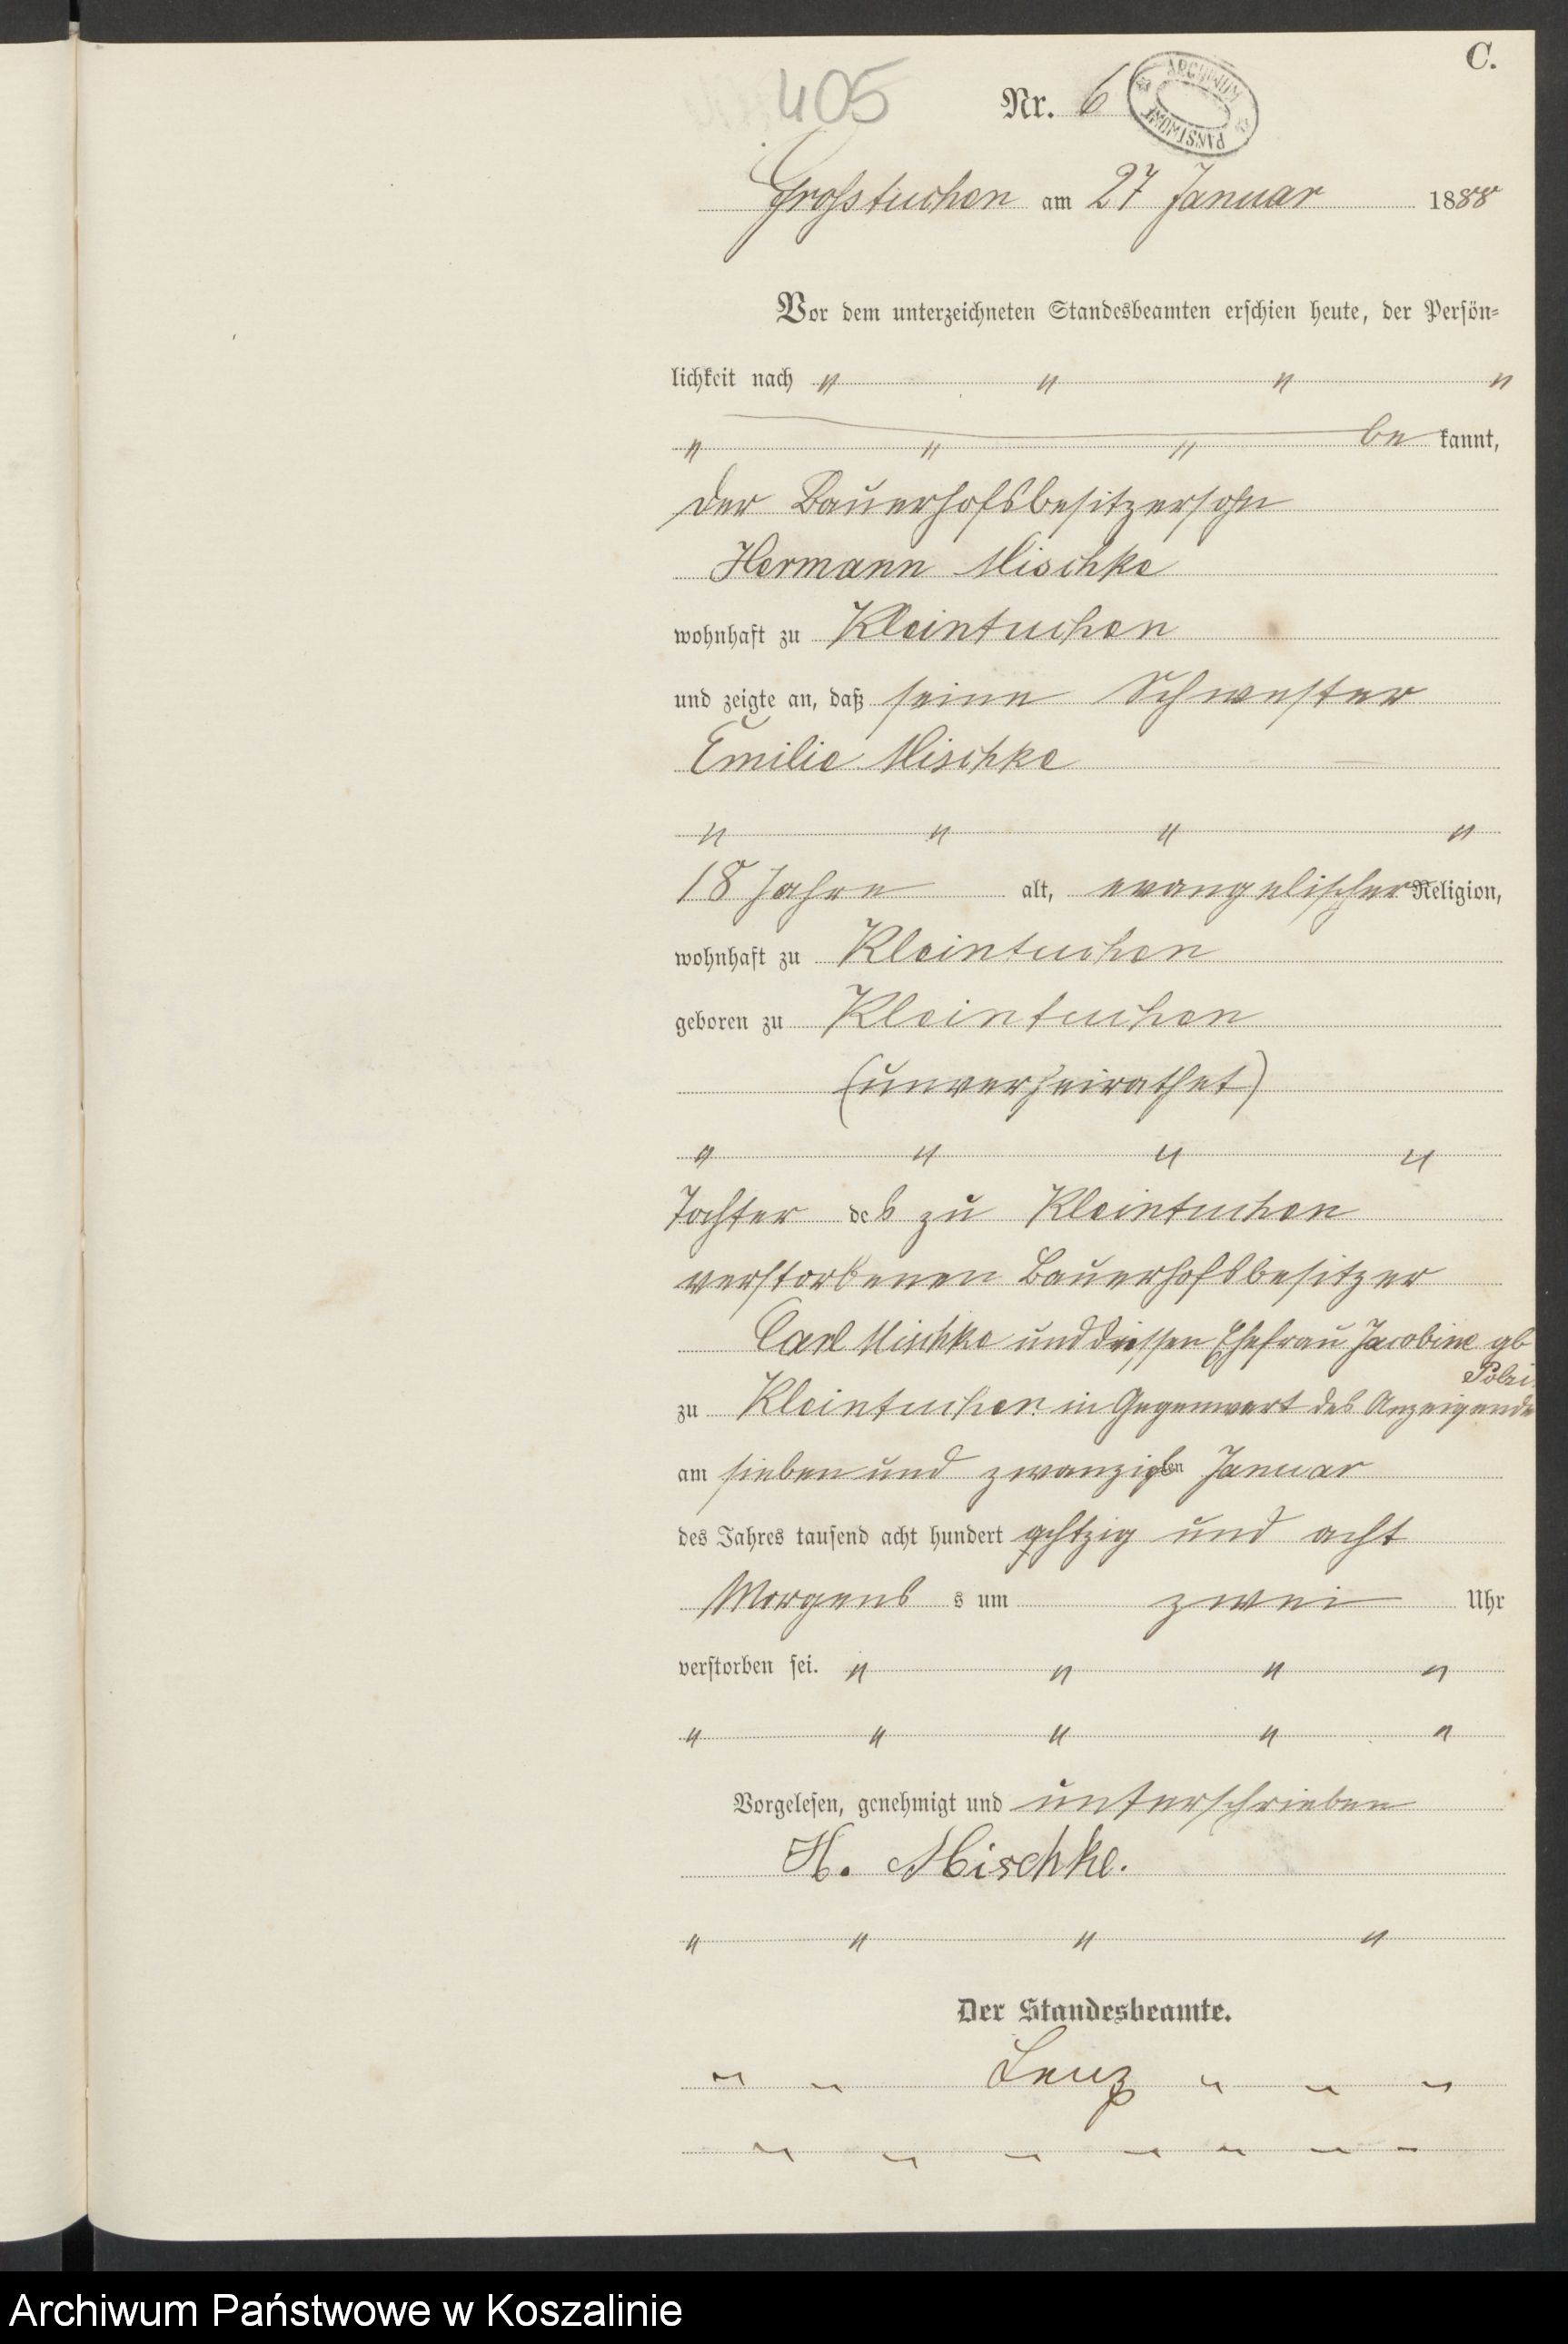 C.
405
Nr. 6
ARCHIWUM PAŃSTWOWE
Großtuchen am 27 Januar 1888
Vor dem unterzeichneten Standesbeamten erschien heute, der Persön-
lichkeit nach " " " "
" " " be kannt,
der Bauerhofsbesitzersohn
Hermann Mischke
wohnhaft zu Kleintuchen
und zeigte an, daß seine Schwester
Emilie Mischke
" " " "
18 Jahre alt, evangelischer Religion,
wohnhaft zu Kleintuchen
geboren zu Kleintuchen
(unverheirathet)
" " " "
Tochter des zu Kleintuchen
verstorbenen Bauerhofsbesitzer
Carl Mischke und dessen Ehefrau Jacobine gb
zu Kleintuchen in Gegenwart des Anzeigende
am sieben und zwanzigsten Januar
des Jahres tausend acht hundert achtzig und acht
Morgens s um zwei Uhr
verstorben sei. " " " "
" " " " "
Vorgelesen, genehmigt und unterschrieben
H. Mischke.
" " " "
Der Standesbeamte.
" " Lenz " " "
" " " " " " "
Archiwum Państwowe w Koszalinie